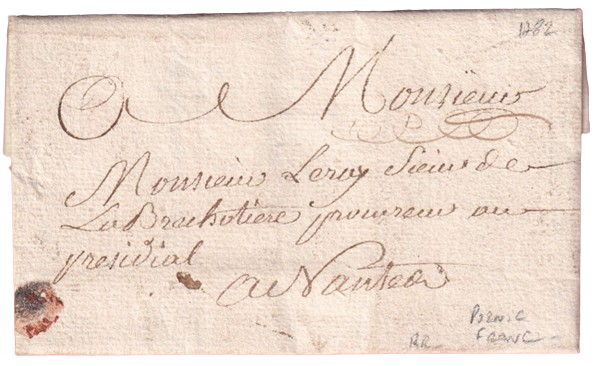 1782
A Monsieur
Monsieur Leroy Sieur de
La Brachotiere procureur au
presidial
A Nantes
Pornic
RR FRANC